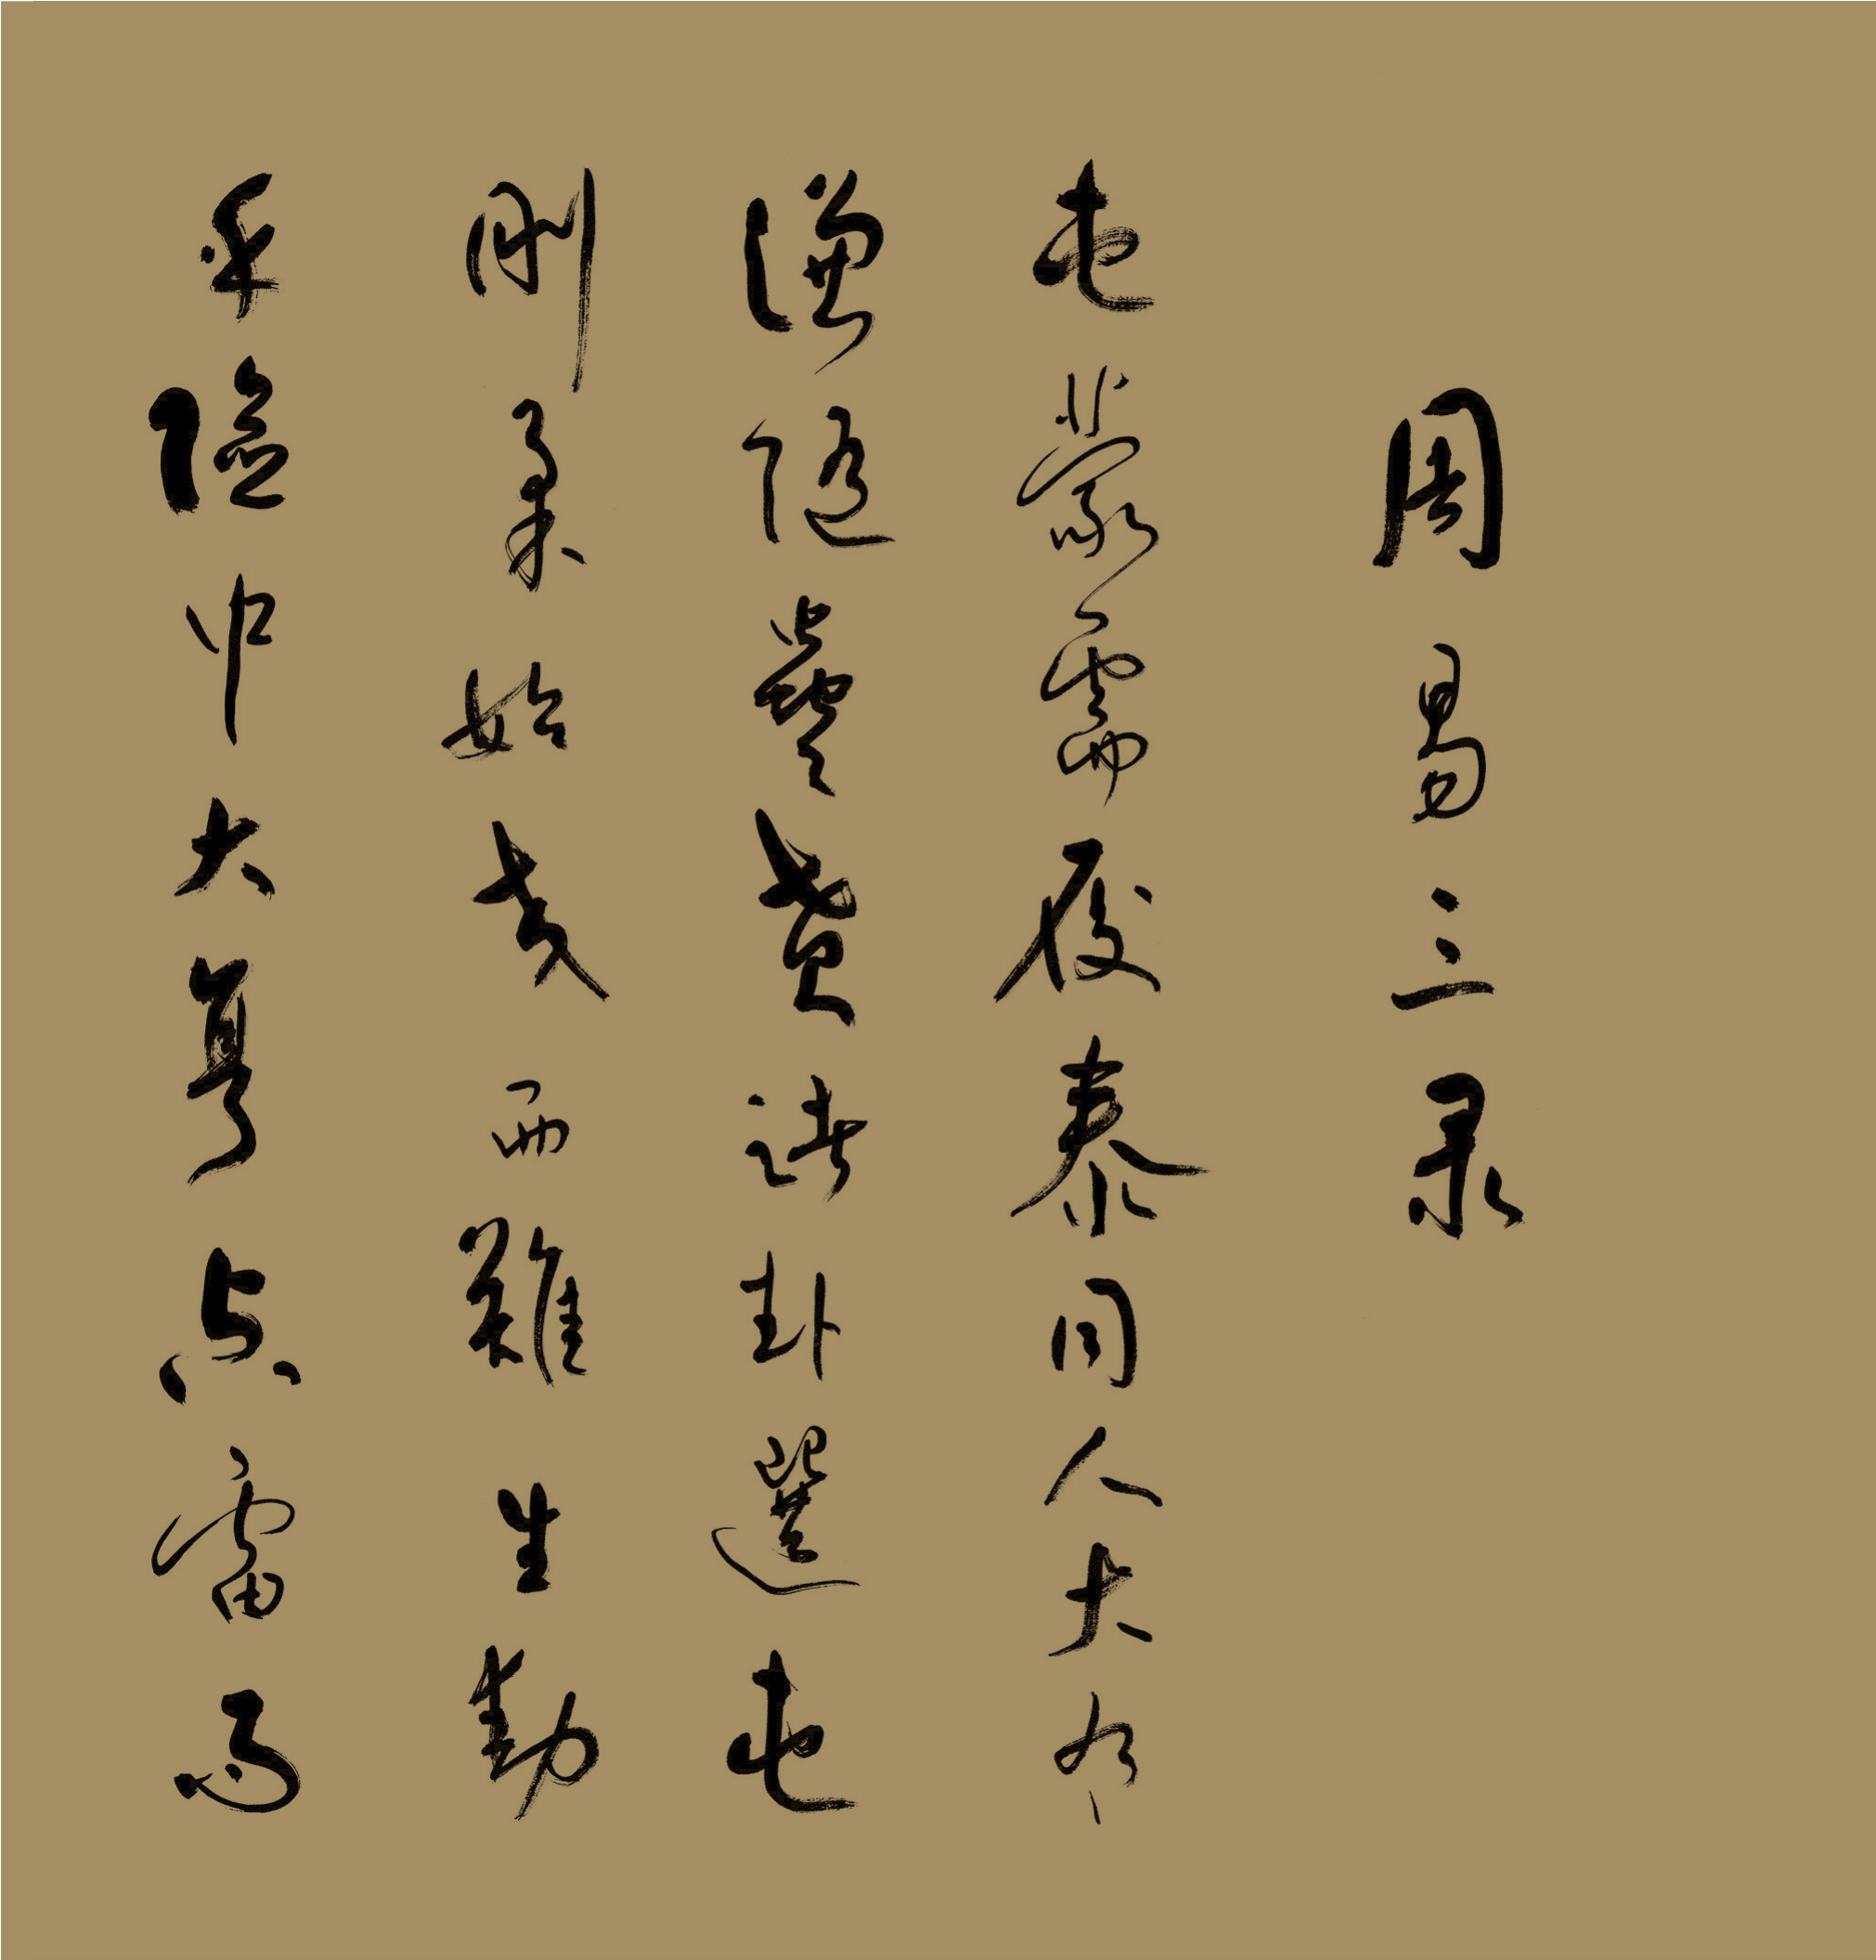 周易三录
屯蒙需履泰同人大有
谦随蛊贲诸卦选屯
刚柔始交而难生动
乎险中大亨贞雷雨